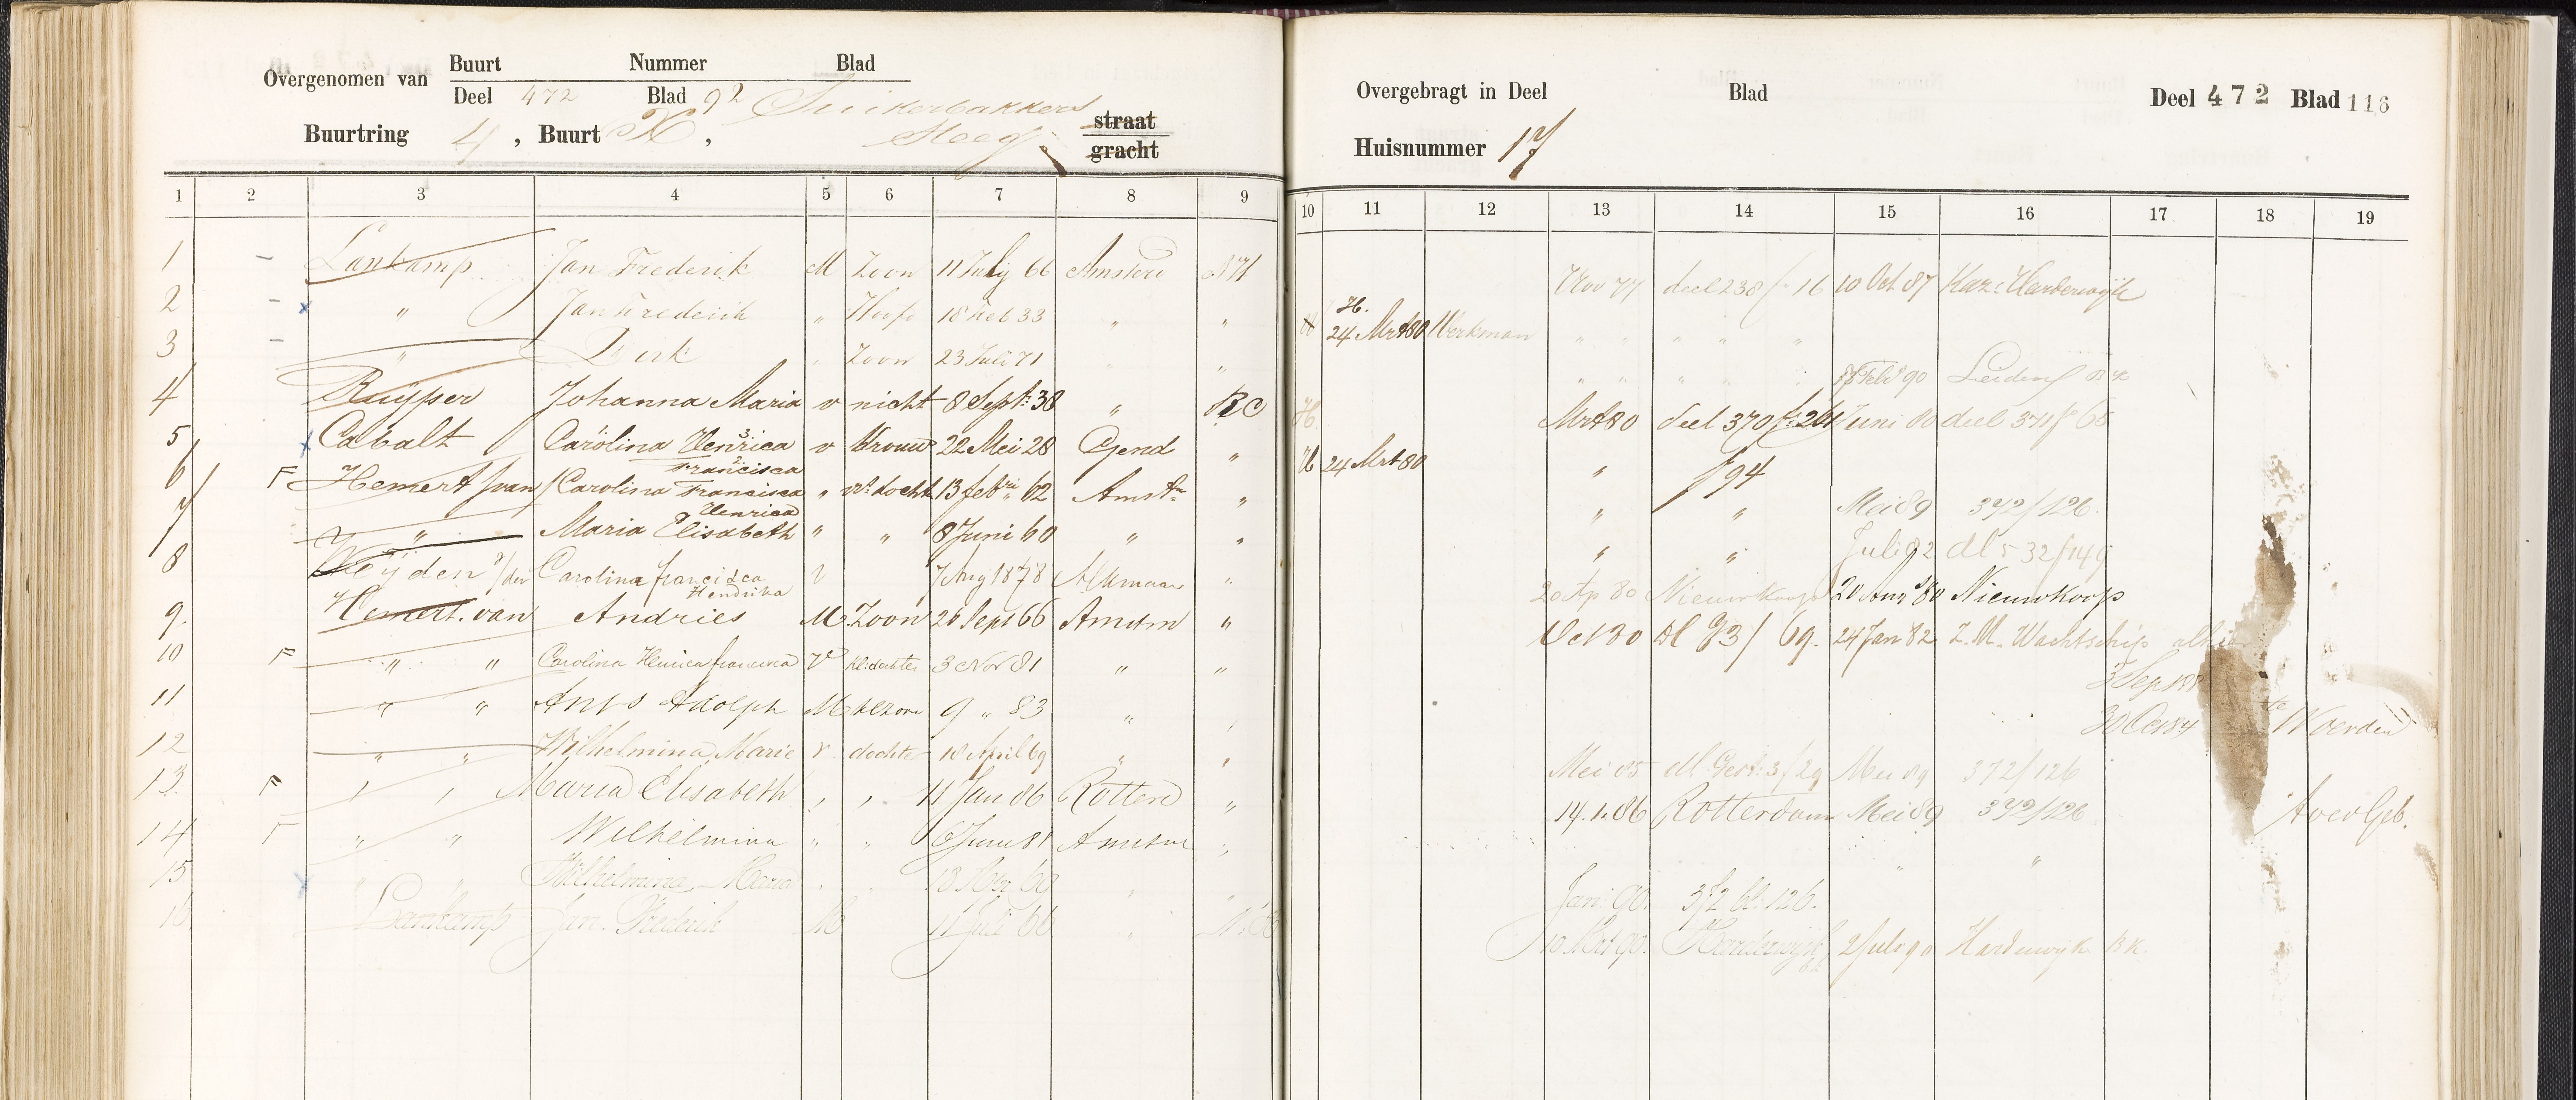 Overgenomen van Buurt Nummer Blad
Deel 472 Blad 92 Suikerbakkers
Buurtring 4, Buurt K, Steeg straat
gracht
Overgebragt in Deel Blad Deel 472 Blad 116
Huisnummer 17
1 2 3 4 5 6 7 8 9 10 11 12 13 14 15 16 17 18 19
1 - Lankamp Jan Frederik M Zoon 11 July 66 Amsterd NH Nov 77 deel 238 f 16 10 Oct 87 Kaz: Harderwijk
2 - x " Jan Frederik " Hoofd 18 Feb 33 " " H H. 24 Mrt 80 Werkman " " " " "
3 - " Dirk " Zoon 23 Juli 71 " " " " " " " Febr 90 Leiden BK
4 Kuijper Johanna Maria v nicht 8 Sept: 38 " RC H. Mrt 80 deel 370 f: 261 Juni 80 deel 371 f 65
5 x Cabalt Carolina Henrica 3 v Vrouw 22 Mei 28 Gend " H 24 Mrt 80 " f 94
Francisca 2
6 F Hemert van Carolina Francisca " docht 13 feb ri 62 Amst m " " " Mei 89 372/126
Henrica
7 " Maria Elisabeth " " 8 Juni 60 " " " " Juli 82 dl 532/149
8 Heijden v/der Carolina francisca v 7 Aug 1878 Alkmaar " 20 Ap 80 Nieuwkoop 20 Aug 80 Nieuwkoop
Hendrika
9. Hemert. van Andries M Zoon 26 Sept 66 Amstm " Oct 80 Dl G3/69. 24 Jan 82 Z. M. Wachtschip alhier
10 F " " Carolina Henrica francisca V kl.dochter 3 Nov 81 " " 3 Sep 188
11 " " Adolph M klzoon 9 " 83 " " 30 Oct 84 Woerden
12 " " Wilhelmina Marie v dochter 18 April 69 " " Mei 85 dl Gest: 3/29 Mei 89 372/126
13. F " " Maria Elisabeth " " 11 Jan 86 Rotterd " 14.1.86 Rotterdam Mei 89 372/126 Geb.
14 F " " Wilhelmina " " 6 Juni 81 Amstm " " "
15 x " " Wilhelmina Maria " " 18 60 " " Jan: 90. 372 bl. 126.
16. Lankamp Jan. Frederik M 11 Juli 66 " 10 90. Harderwijk bk 2 Juli 90 Harderwijk BK.